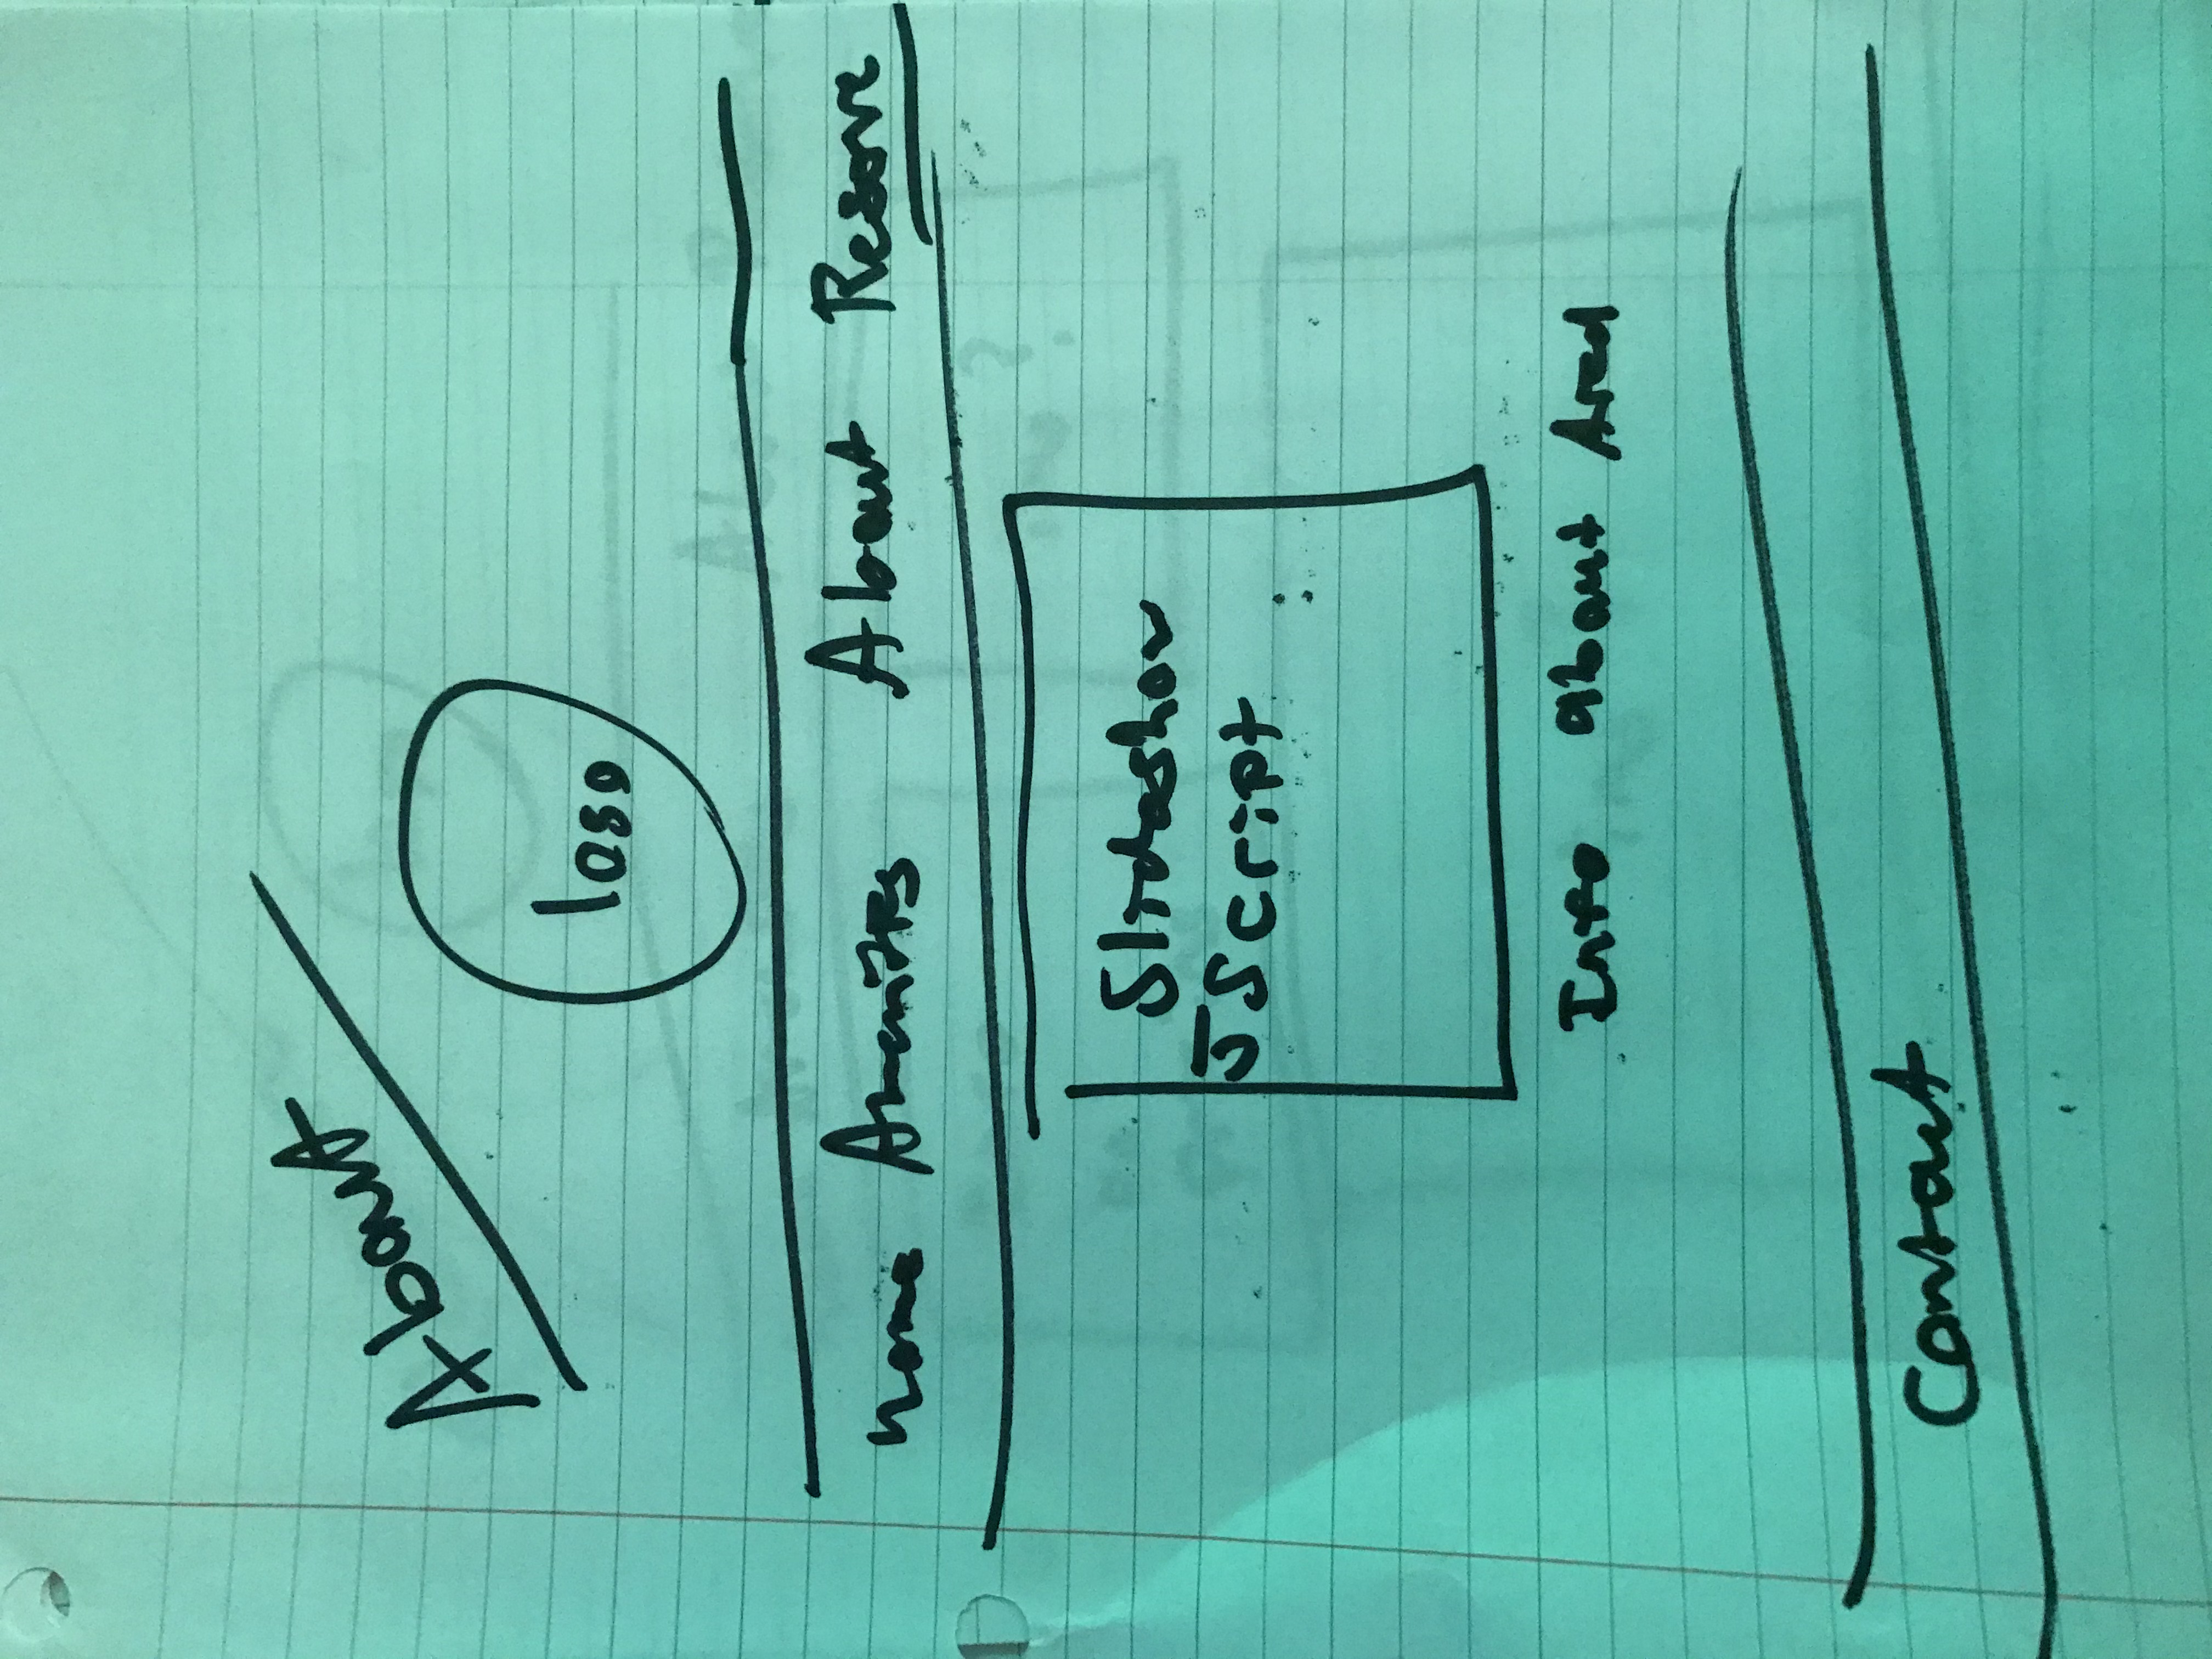 About
logo
home Amenities About Reserve
Slideshow
JScript
Info about Area
Contact